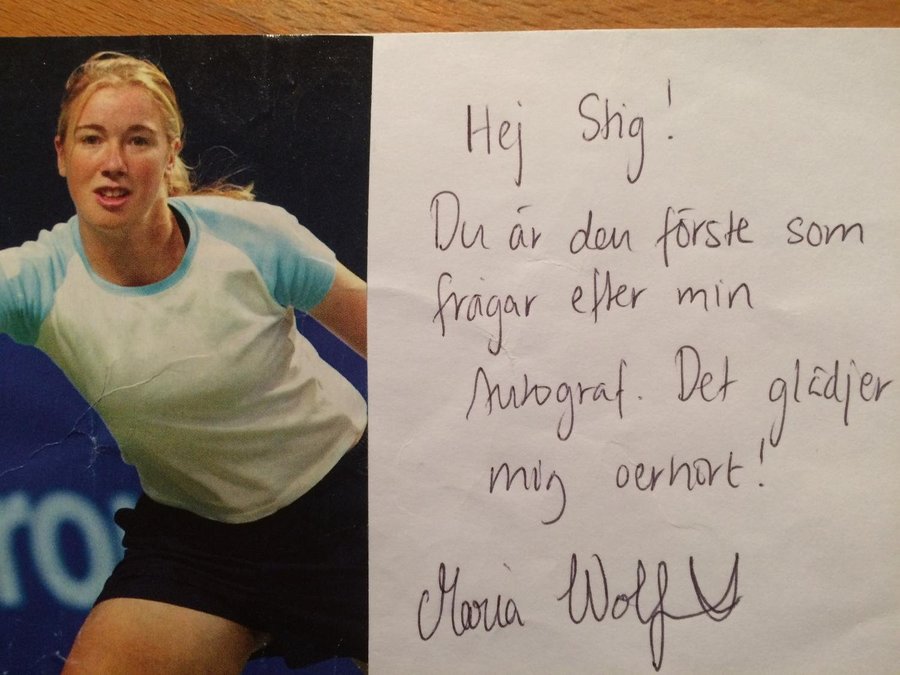 Hej Stig!
Du är den förste som
frågar efter min
Autograf. Det glädjer
mig oerhört!
Maria Wolf
ro